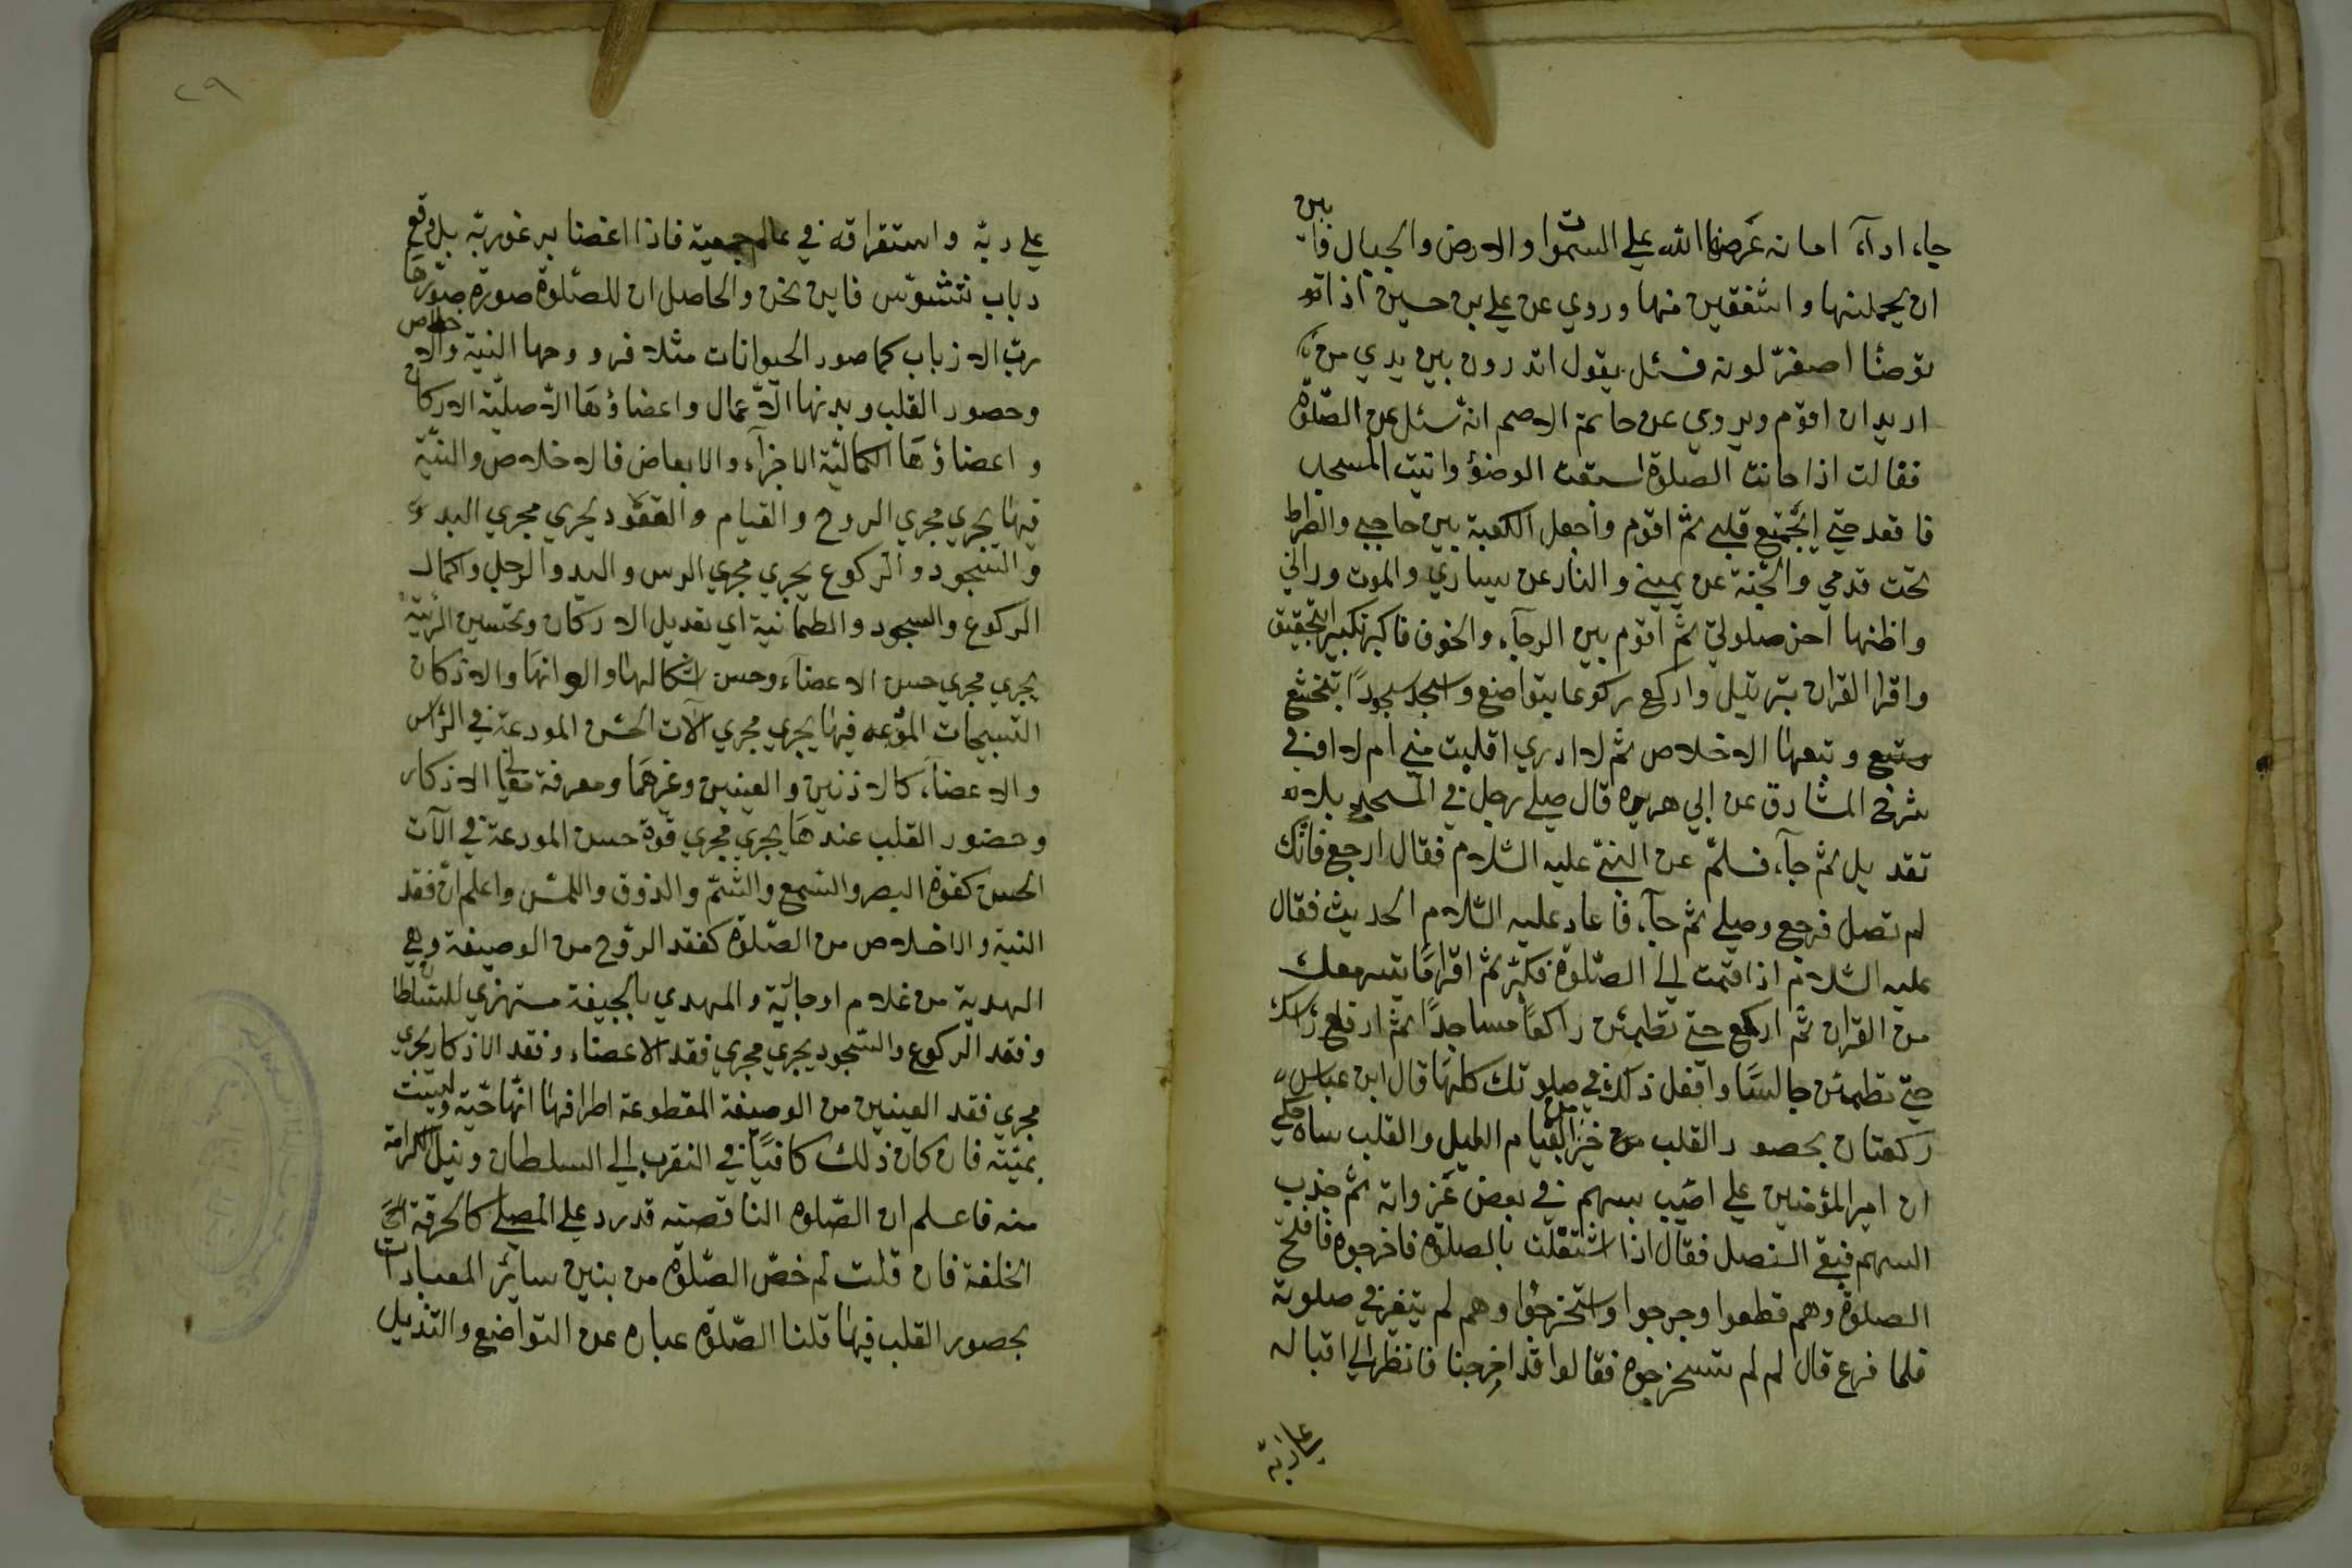 جاء ادآء امانة عرضها الله على السموات والارض والجبال فابين
ان يحملنها واشفقين منها وروي عن علي بن حسين اذا
توضئا اصفرّ لونه فسئل يقول اتدرون بين يدي من
اريد ان اقوم ويروي عن حاتم الاصم انه سئل عن الصّلوة
فقالت اذا حانت الصلوة اسبغت الوضؤ واتيت المسجد
فاقعد حتي ايجتمع قلبي ثم اقوم واجعل الكعبة بين حاجبي والصراط
تحت قدمي والجنة عن يميني والنار عن يساري والموت ورائي
واظنها اخر صلوتي ثم اقوم بين الرجآء والخوف فاكبر تكبير التحقيق
واقرا القران بترتيل واركع ركوعا بتواضع واسجد سجودًا بتخشع
وتبعها الاخلاص ثم لا ادري اقبلت مني ام لا وفي
شرح المشارق عن ابي هريره قال صلي رجل في المسجد بلا
تعديل ثم جآء فسلّم عن النبيّ عليه السّلام فقال ارجع فانّك
لم تصل فرجع وصلي ثم جآء فاعاد عليه السّلام الحديث فقال
عليه السّلام اذا قمت الي الصّلوة فكبّر ثم اقرا مَا تيسر معك
من القران ثم اركع حتي تطمئن راكعًا ساجدًا ثم ارفع راسك
حتي تطمئن جالسًا وافعل ذلك في صلوتك كلهَا قال ابن عباس ر
ركعتان بحصور القلب خير من القيام الليل والقلب ساه حكي
ان امير المؤمنين علي اصَيب بسهم في بعض غَزواته ثم جذب
السهم فبقي النصل فقال اذا اشتغلت بالصلوة فاخرجوه فافتتح
الصلوة وهم قطعوا وجرحوا واستخرجوا وهم لم يتغير في صلوته
فلما فرع قال لم لم تستخرجوه فقالوا قد اخرجنا فانظر الي اقباله
علي
ربّه
٢٩
علي ربّه واستغراقه في عالم جمعية فاذا اغضنا بل وقع
دباب نتشوّس فاين نحن والحاصل ان للصّلوة صورة صوّرهَا
ربّ الارباب كما صور الحيوانات مثلا فروحها النية والاخلاص
وحصور القلب وبدنها الاعمال واعضاؤهَا الاصليّة الاركان
واعضاؤهَا الكماليّة الاجزآء والابعاض فالاخلاص والنيّة
فيها يجري مجري الروح والقيام والقعود يجري مجري البدن
والسّجود والركوع يجري مجري الرس واليد والرجل واكمال
الركوع والسجود والطمانية اي تعديل الاركان وتحسين الهيئة
يجري مجري حسن الاعضآء وحسن اشكالها والوانهَا والاذكان
التسبيحات المودعه فيها يجري مجري الآت الحسّ المودعة في الرّاس
والاعضآء كالاذنين والعينين وغيرهَما ومعرفة معاني الاذكار
وحضور القلب عندهَا يجري مجري قوة حسن المودعة في الآت
الحسّ كقوة البصر والسّمع والشّمّ والذوق واللمس واعلم انّ فقد
النية والاخلاص من الصّلوة كفقد الرّوح من الوصيفة وهي
الهدية من غلام اوجاريّة والمهدي بالجيفة مستهزي للسّلطان
وفقد الركوع والسّجود يجري مجري فقد الاعضاء وفقد الاذكار يجري
مجري فقد العينين من الوصيفة المقطوعة اطرافها انّها حيّة وليست
بميّتة فان كان ذلك كافيًا في التقرب الي السلطان ونيل الكرامة
منه فاعلم ان الصّلوه الناقصته قد ردّ علي المصلي كالخرقة
الخلقة فان قلت لم خصّ الصّلوة من بنين سائر المعبادات
بحصور القلب فيها قلنا الصّلوة عباره عن التواضع والتذلل